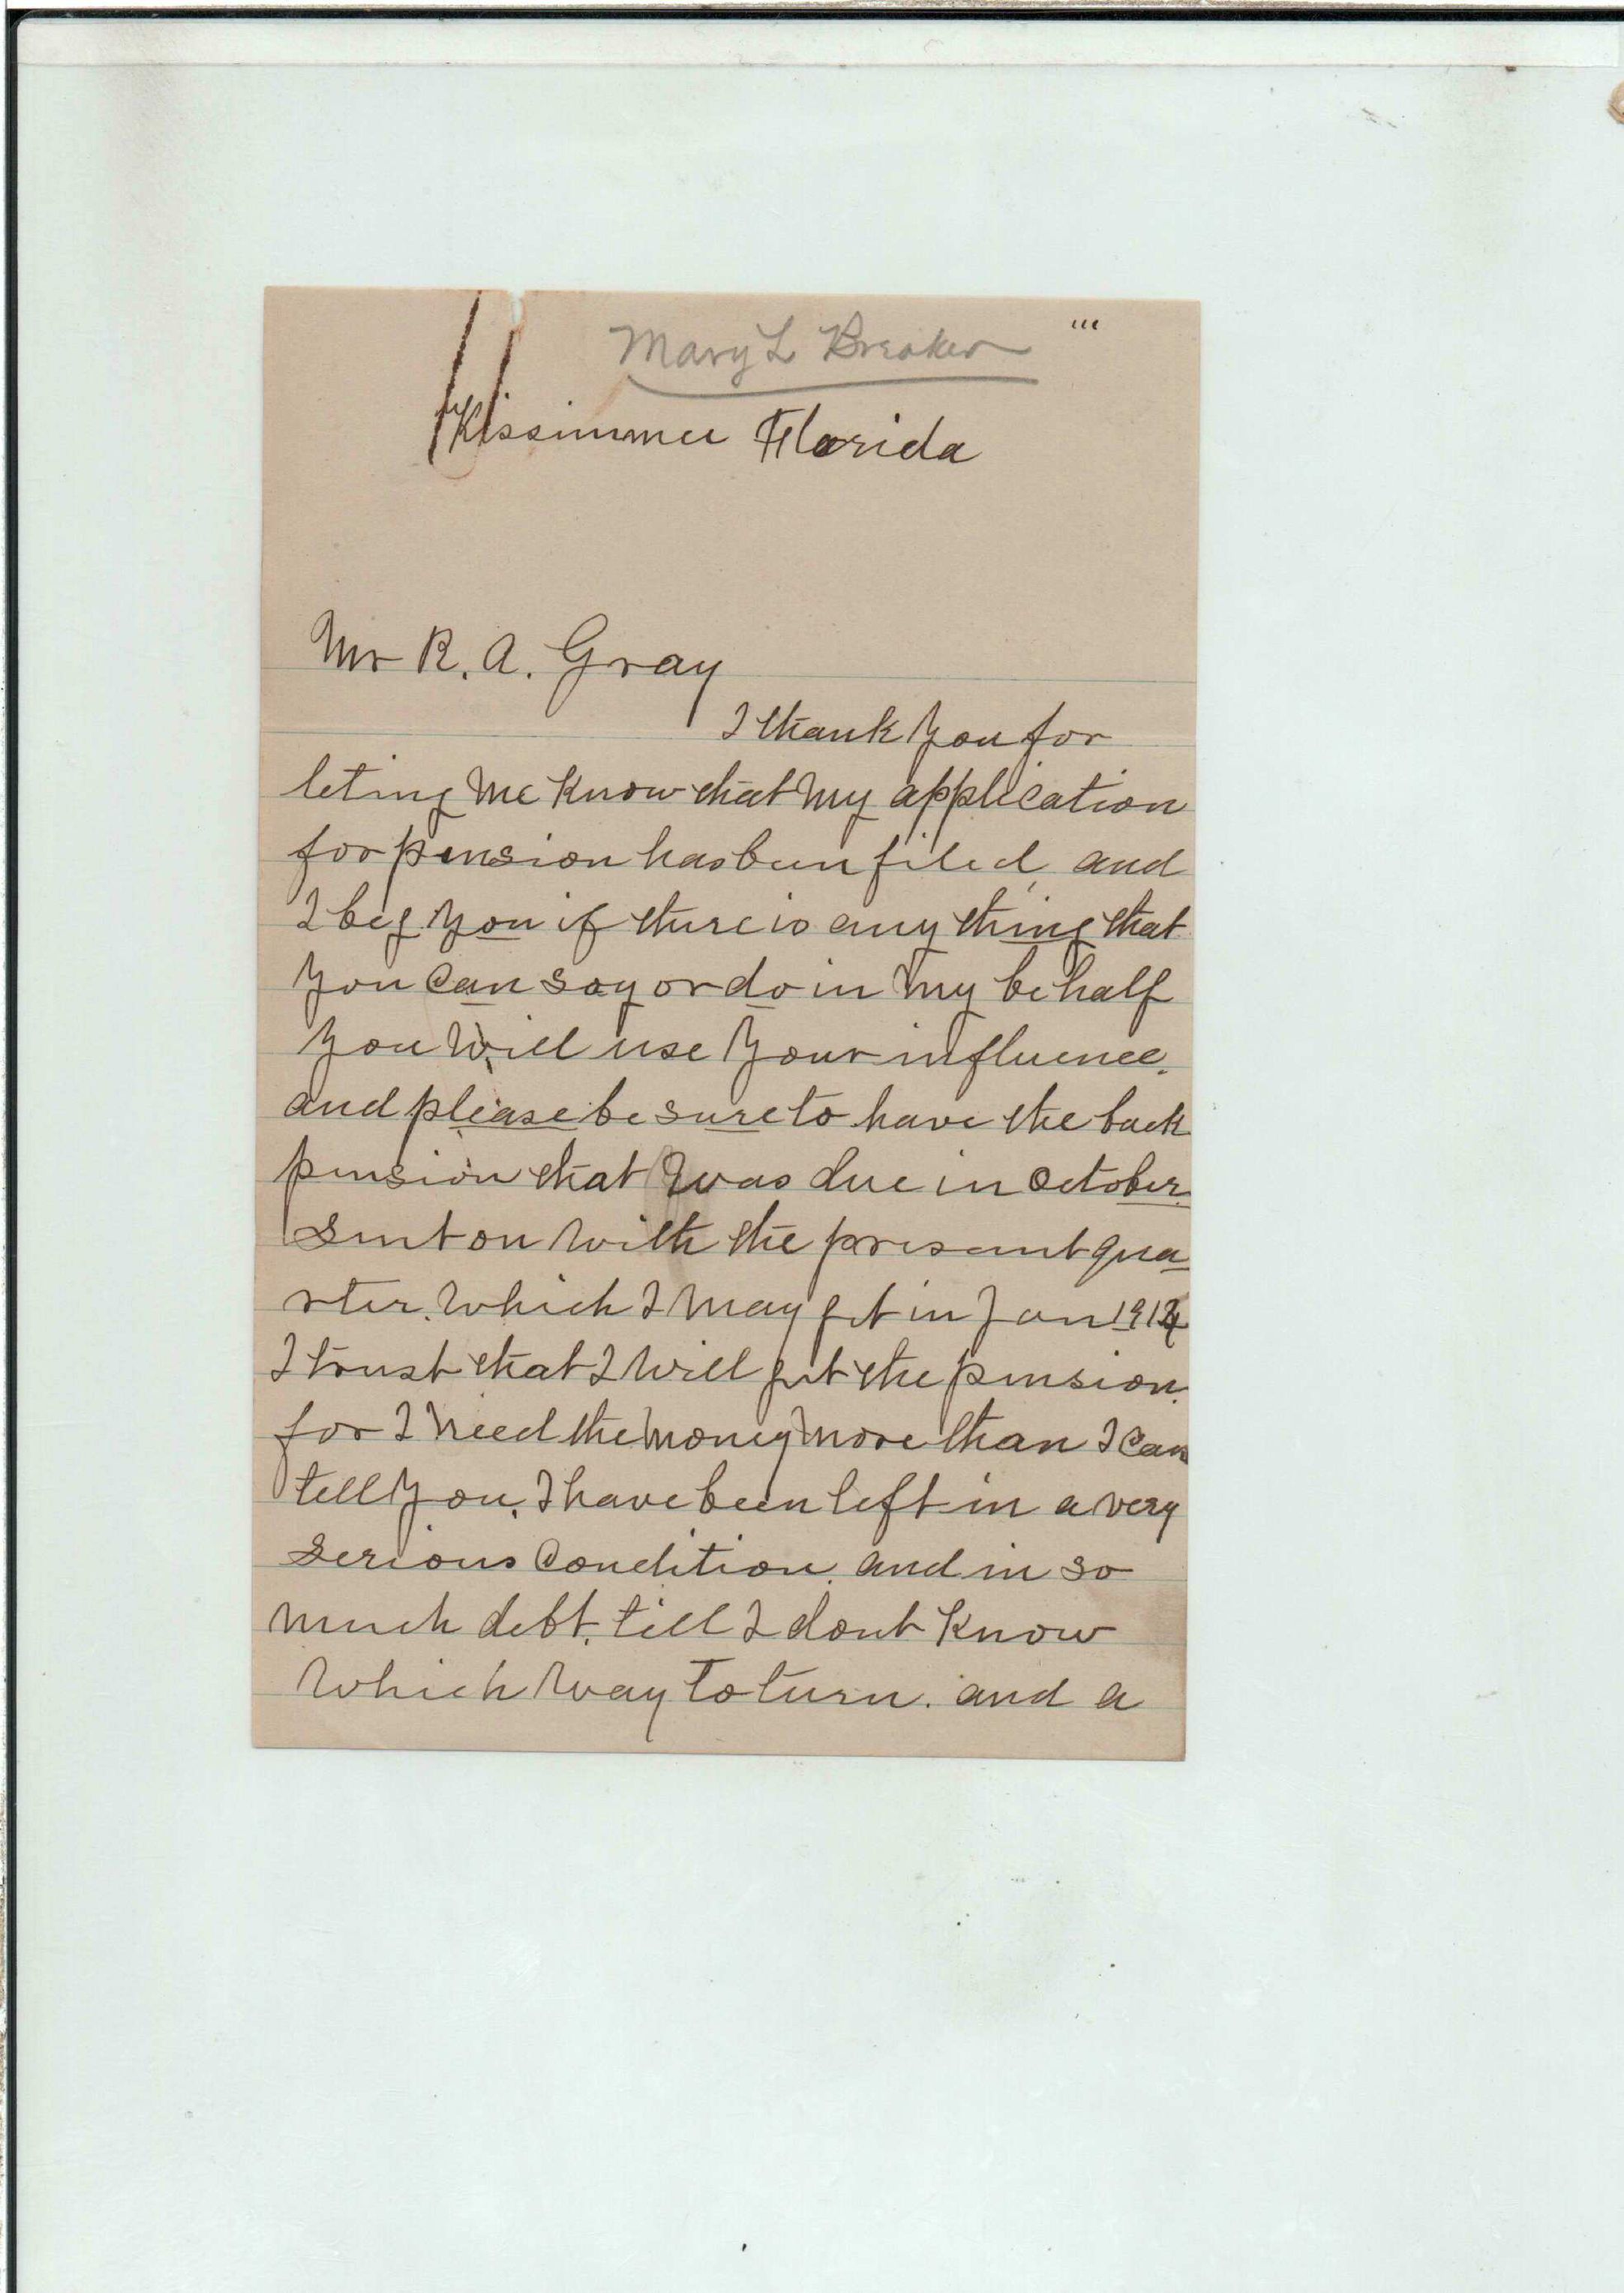 Mary L Breaker
Kissimmee Florida
Mr R. A. Gray
I thank you for
leting me know that my application
for pension has been filed, and
I beg you if there is any thing that
you can say or do in my behalf
you will use your influence.
and please be sure to have the back
pension that was due in October.
sent on with the present qua
rter. which I may get in Jan 1914
I trust that I will get the pension.
for I need the money more than I can
tell you. I have been left in a very
serious condition. and in so
much debt. till I dont know
which way to turn. and a